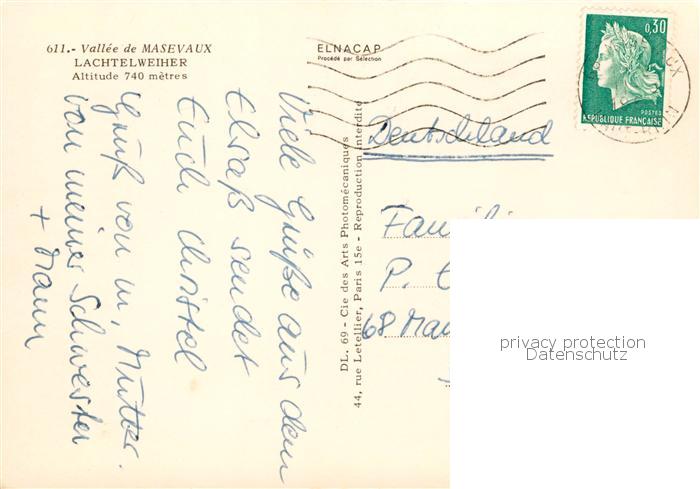 611.- Vallée de MASEVAUX
LACHTELWEIHER
Altitude 740 mètres
ELNACAP
Procédé par Sélection
0,30
POSTES
REPUBLIQUE FRANÇAISE
Viele Grüße aus dem
Elsaß sendet
Euch Christel
Gruß von m. Mutter.
von meiner Schwester
+ Mann
DL. 69 - Cie des Arts Photomécaniques
44, rue Letellier, Paris 15e - Reproduction interdite
Deutschland
P.
68
privacy protection
Datenschutz